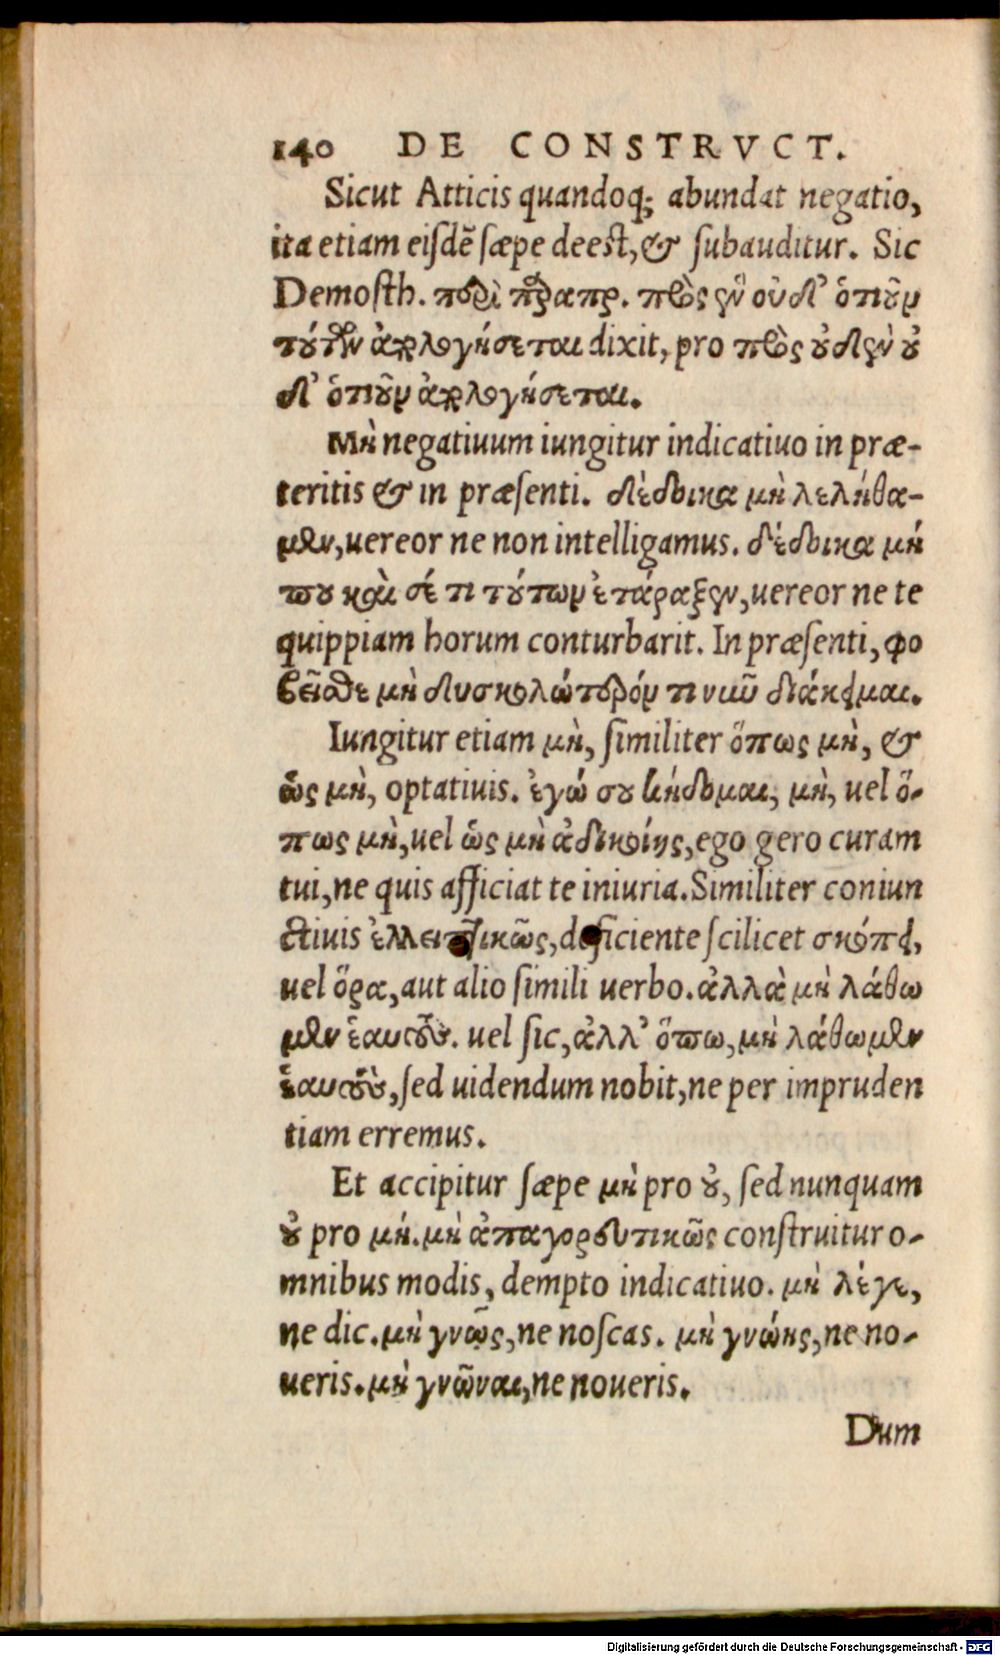 140 DE CONSTRVCT.
Sicut Atticis quandoq; abundat negatio,
ita etiam eiſdē ſæpe deest, & ſubauditur. Sic
Demosth. περὶ παραπρ. πῶς ἦν οὐδ' ὁτιοῦν
τούτων ἀπολογήσεται dixit, pro πῶς οὐδὲν οὐ
δ' ὁτιοῦν ἀπολογήσεται.
Μὴ negatiuum iungitur indicatiuo in præ-
teritis & in præſenti. δέδοικα μὴ λελήθα-
μεν, uereor ne non intelligamus. δέδοικα μή
που καὶ σέ τι τούτων ἐτάραξεν, uereor ne te
quippiam horum conturbarit. In præſenti, φο
βεῖσθε μὴ δυσκολώτερόν τι νῦν διάκειμαι.
Iungitur etiam μὴ, ſimiliter ὅπως μὴ, &
ὡς μὴ, optatiuis. ἐγώ σου κήδομαι, μὴ, uel ὅ-
πως μὴ, uel ὡς μὴ ἀδικοίης, ego gero curam
tui, ne quis afficiat te iniuria. Similiter coniun
ctiuis ἐλλειπτικῶς, deficiente ſcilicet σκόπει,
uel ὅρα, aut alio ſimili uerbo. ἀλλὰ μὴ λάθω
μεν ἑαυτούς. uel ſic, ἀλλ' ὅπω, μὴ λάθωμεν
ἑαυτοὺς, ſed uidendum nobit, ne per impruden
tiam erremus.
Et accipitur ſæpe μὴ pro οὐ, ſed nunquam
οὐ pro μή. μὴ ἀπαγορευτικῶς construitur o-
mnibus modis, dempto indicatiuo. μὴ λέγε,
ne dic. μὴ γνῷς, ne noſcas. μὴ γνώης, ne no-
ueris. μὴ γνῶναι, ne noueris.
Dum
Digitalisierung gefördert durch die Deutsche Forschungsgemeinschaft - DFG